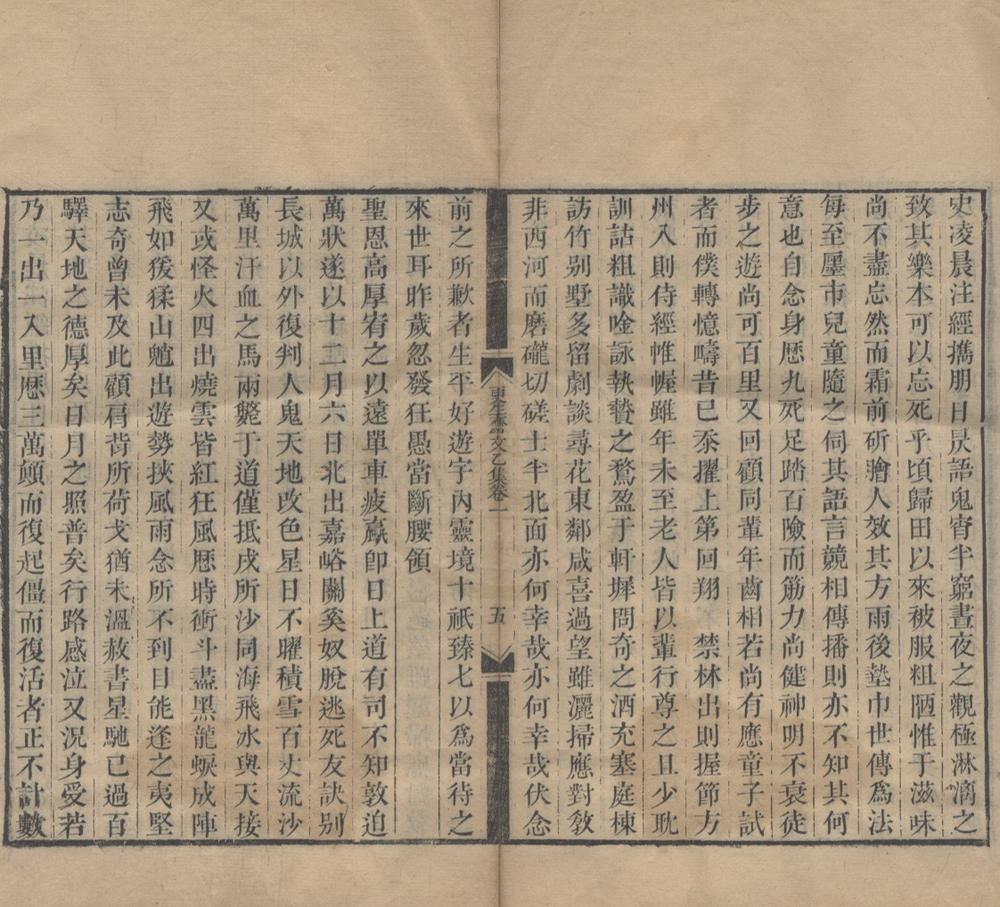 史凌晨注經攜朋日昃語鬼宵半窮晝夜之觀極淋漓之
致其樂本可以忘死乎頃歸田以來被服粗陋惟于滋味
尚不盡忘然而霜前斫膾人效其方雨後墊巾世傳為法
每至墨市兒童隨之伺其語言競相傳播則亦不知其何
意也自念身歷九死足踏百險而筋力尚健神明不衰徒
步之遊尚可百里又回顧同輩年齒相若尚有應童子試
者而僕轉憶疇昔已忝擢上第回翔 禁林出則握節方
州入則侍經帷幄雖年未至老人皆以輩行尊之且少耽
訓詁粗識唫詠執贄之鶩盈于軒墀問奇之酒充塞庭棟
訪竹別墅多留劇談尋花東鄰咸喜過望雖灑掃應對教
非西河而磨礲切磋士半北面亦何幸哉亦何幸哉伏念
更生齋文乙集卷一
五
前之所歉者生平好遊宇內靈境十祇臻七以為當待之
來世耳昨歲忽發狂愚當斷腰領
聖恩高厚宥之以遠單車疲羸卽日上道有司不知敦迫
萬狀遂以十二月六日北出嘉峪關奚奴脫逃死友訣別
長城以外復判人鬼天地改色星日不曜積雪百丈流沙
萬里汗血之馬兩斃于道僅抵戍所沙同海飛冰與天接
又或怪火四出燒雲皆紅狂風歷時衝斗盡黑龍蜧成陣
飛如猨猱山魈出遊勢挾風雨念所不到目能逢之夷堅
志奇曾未及此顧肩背所荷戈猶未溫赦書星馳已過百
驛天地之德厚矣日月之照普矣行路感泣又況身受若
乃一出一入里歷三萬顛而復起僵而復活者正不計數